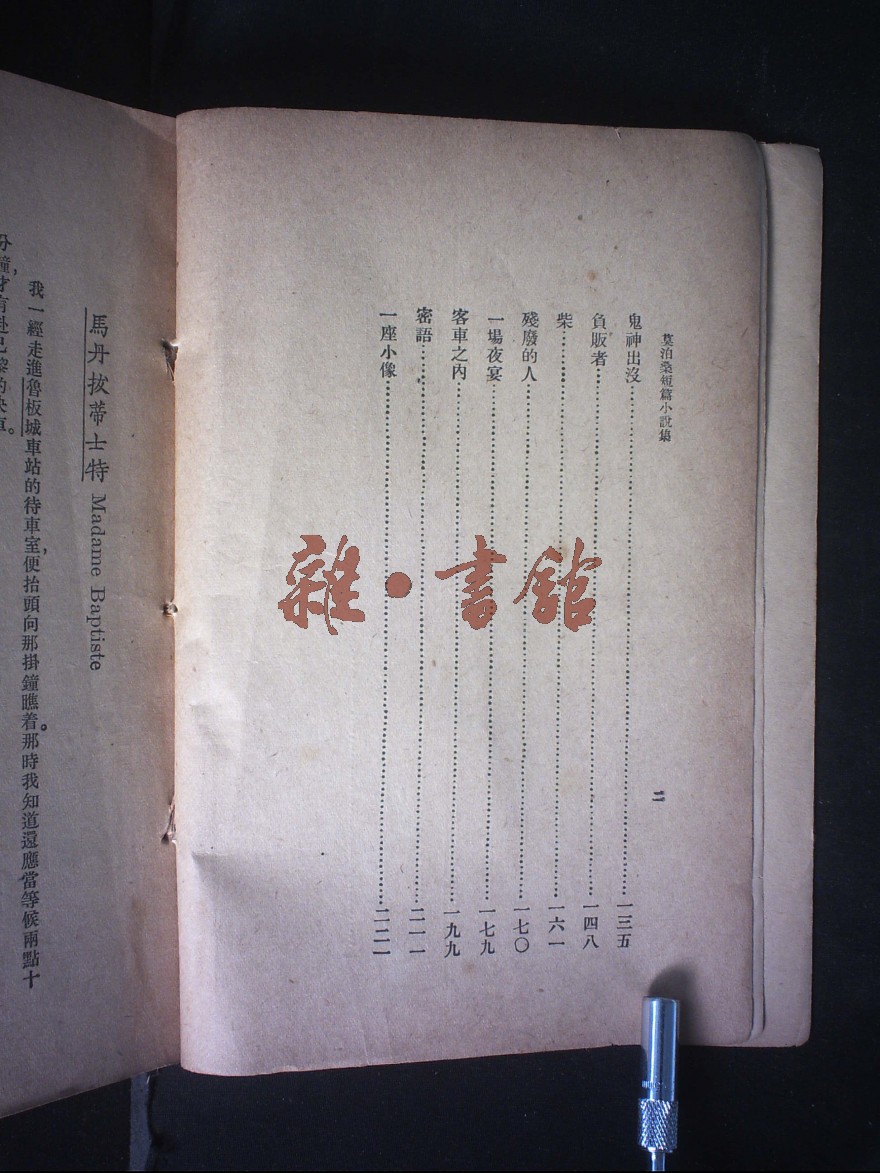 莫泊桑短篇小說集 二
鬼神出沒……………………一三五
負販者……………………一四八
柴……………………一六一
殘廢的人……………………一七〇
一場夜宴……………………一七九
客車之內……………………一九九
密語……………………二一一
一座小像……………………二二二
馬丹拔蒂士特 Madame Baptiste
我一經走進魯板城車站的待車室,便抬頭向那掛鐘瞧着。那時我知道還應當等候兩點十
分鐘,才有赴巴黎的快車。
雜·書館